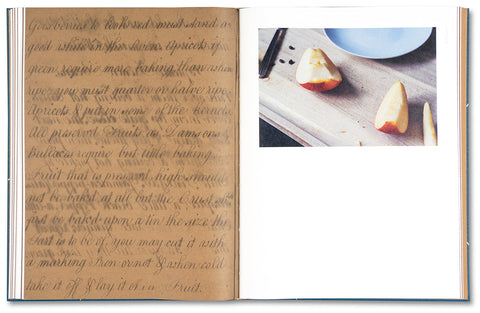 Gooseberries to look red must stand a
good while in the Oven. Apricots if
green require more baking than when
ripe; you must quarter or halve ripe
Apricots & put in some of the Kernels
All preserv'd Fruits as Damsons &
Bullaces require but little baking.
Fruit that is preserv'd high should
not be bak'd at all but the Crust
first be bak'd upon a tin the size the
Tart is to be of. you may cut it with
a marking Iron or not & when cold
take it off & lay it on Fruit.